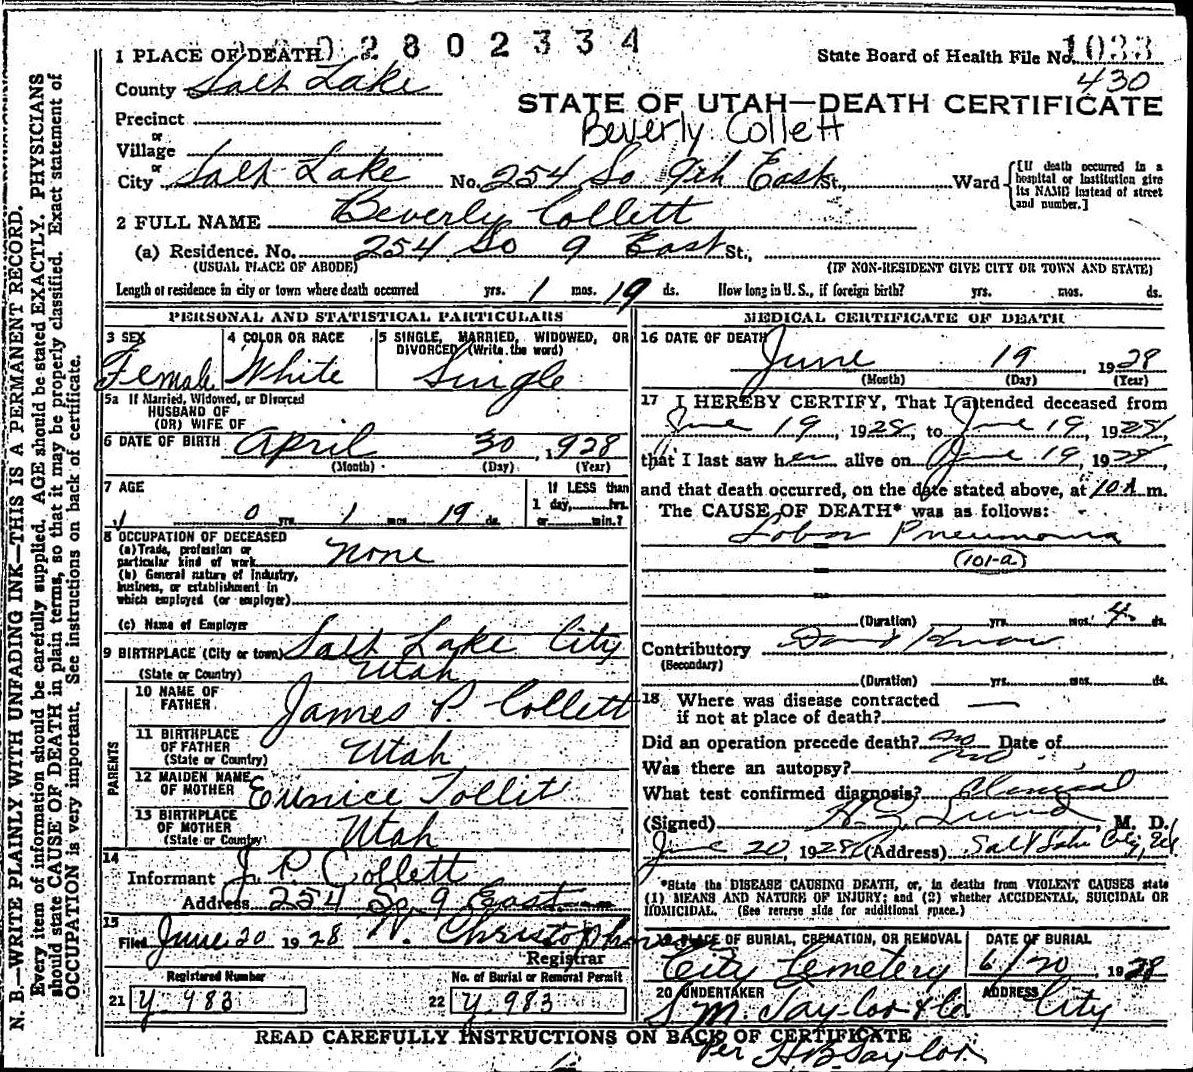 N. B.—WRITE PLAINLY WITH UNFADING INK—THIS IS A PERMANENT RECORD.
Every item of information should be carefully supplied. AGE should be stated EXACTLY. PHYSICIANS
should state CAUSE OF DEATH in plain terms, so that it may be properly classified. Exact statement of
OCCUPATION is very important. See instructions on back of certificate.
2802334
1 PLACE OF DEATH
State Board of Health File No. 1033
430
County Salt Lake
STATE OF UTAH—DEATH CERTIFICATE
Beverly Collett
Precinct
or
Village
or
City Salt Lake No. 254 So 9th East St., Ward
[If death occurred in a
hospital or institution give
its NAME instead of street
and number.]
2 FULL NAME Beverly Collett
(a) Residence. No. 254 So 9 East St.,
(USUAL PLACE OF ABODE) (IF NON-RESIDENT GIVE CITY OR TOWN AND STATE)
Length of residence in city or town where death occurred yrs. 1 mos. 19 ds. How long in U.S., if foreign birth? yrs. mos. ds.
PERSONAL AND STATISTICAL PARTICULARS
3 SEX
Female
4 COLOR OR RACE
White
5 SINGLE, MARRIED, WIDOWED, OR
DIVORCED (Write the word)
Single
5a If Married, Widowed, or Divorced
HUSBAND OF
(OR) WIFE OF
6 DATE OF BIRTH April 30, 1928
(Month) (Day) (Year)
7 AGE
0 yrs. 1 mos. 19 ds.
If LESS than
1 day, hrs.
or min.?
8 OCCUPATION OF DECEASED
(a) Trade, profession or
particular kind of work none
(b) General nature of industry,
business, or establishment in
which employed (or employer)
(c) Name of Employer
9 BIRTHPLACE (City or town) Salt Lake City
(State or Country) Utah
PARENTS
10 NAME OF
FATHER James P. Collett
11 BIRTHPLACE
OF FATHER
(State or Country) Utah
12 MAIDEN NAME
OF MOTHER Eunice Tollit
13 BIRTHPLACE
OF MOTHER
(State or Country) Utah
14
Informant J. P. Collett
Address 254 So 9 East
15
Filed June 20 1928 W. Christopherson
Registrar
Registered Number
21 Y 983
No. of Burial or Removal Permit
22 Y 983
MEDICAL CERTIFICATE OF DEATH
16 DATE OF DEATH
June 19 1928
(Month) (Day) (Year)
17 I HEREBY CERTIFY, That I attended deceased from
June 19, 1928, to June 19, 1928,
that I last saw her alive on June 19, 1928,
and that death occurred, on the date stated above, at 10 A m.
The CAUSE OF DEATH* was as follows:
Lobar Pneumonia
(101-a)
(Duration) yrs. mos. 4 ds.
Contributory
(Secondary)
(Duration) yrs. mos. ds.
18 Where was disease contracted
if not at place of death? —
Did an operation precede death? no Date of
Was there an autopsy? no
What test confirmed diagnosis? Clinical
(Signed) Lund, M. D.
June 20, 1928 (Address) Salt Lake City, Ut.
*State the DISEASE CAUSING DEATH, or, in deaths from VIOLENT CAUSES state
(1) MEANS AND NATURE OF INJURY; and (2) whether ACCIDENTAL, SUICIDAL OR
HOMICIDAL. (See reverse side for additional space.)
19 PLACE OF BURIAL, CREMATION, OR REMOVAL
City Cemetery
DATE OF BURIAL
6/20 1928
20 UNDERTAKER
S. M. Taylor & Co.
ADDRESS
City
READ CAREFULLY INSTRUCTIONS ON BACK OF CERTIFICATE
Per H B Taylor